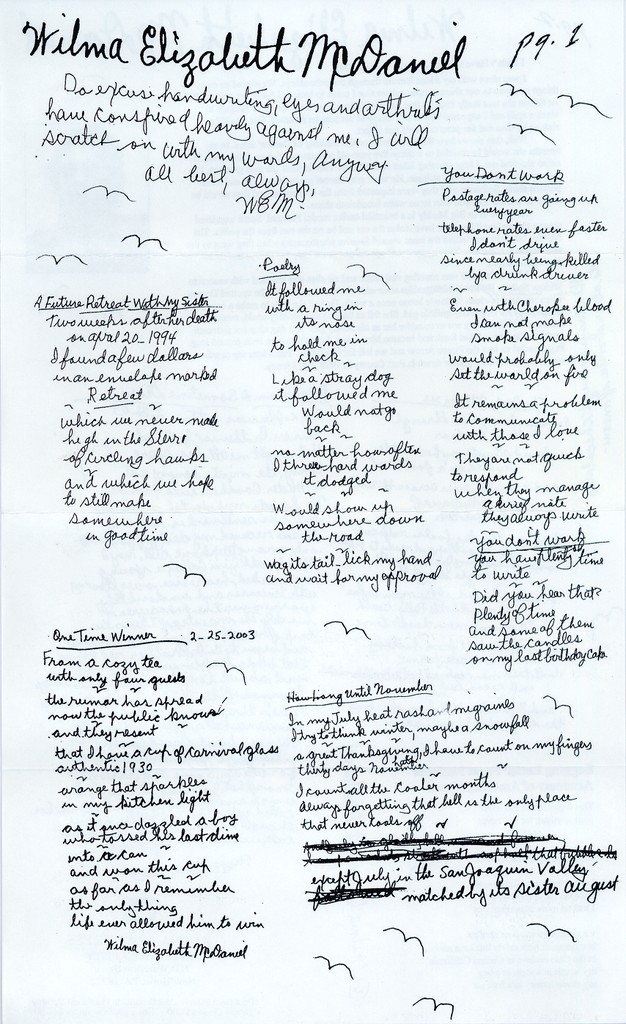 Wilma Elizabeth McDaniel
pg. 1
Do excuse handwriting, eyes and arthritis
have conspired heavily against me. I will
scratch on with my words, Anyway.
all best, always,
WEM.
A Future Retreat With My Sister
Two weeks after her death
on april 20 - 1994
I found a few dollars
in an envelope marked
Retreat
which we never made
high in the Sierra
of circling hawks
and which we hope
to still make
somewhere
in good time
Poetry
It followed me
with a ring in
its nose
to hold me in
check
Like a stray dog
it followed me
Would not go
back
no matter how often
I threw hard words
it dodged
Would show up
somewhere down
the road
wag its tail - lick my hand
and wait for my approval
You Don't Work
Postage rates are going up
every year
telephone rates even faster
I don't drive
since nearly being killed
by a drunk driver
Even with Cherokee blood
I can not make
smoke signals
would probably only
set the world on fire
It remains a problem
to communicate
with those I love
They are not quick
to respond
when they manage
a brief note
they always write
You don't work
you have plenty of time
to write
Did you hear that?
Plenty of time
and some of them
saw the candles
on my last birthday cake
One Time Winner 2-25-2003
From a cozy tea
with only four guests
the rumor has spread
now the public knows
and they resent
that I have a cup of carnival glass
authentic 1930
orange that sparkles
in my kitchen light
as it once dazzled a boy
who tossed his last dime
into a can
and won this cup
as far as I remember
the only thing
life ever allowed him to win
Wilma Elizabeth McDaniel
How Long Until November
In my July heat rash and migraines
I try to think winter, maybe a snowfall
a great Thanksgiving, I have to count on my fingers
thirty days hath November
I count all the cooler months
always forgetting that hell is the only place
that never cools off
except July in the San Joaquin Valley,
matched by its sister august